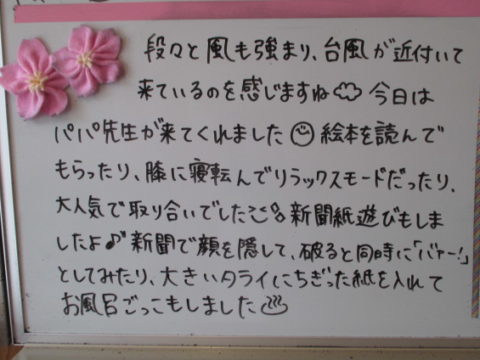 段々と風も強まり、台風が近付いて
来ているのを感じますね 今日は
パパ先生が来てくれました 絵本を読んで
もらったり、膝に寝転んでリラックスモードだったり、
大人気で取り合いでした 新聞紙遊びもしま
したよ♪ 新聞で顔を隠して、破ると同時に「バァー!」
としてみたり、大きいタライにちぎった紙を入れて
お風呂ごっこもしました♨